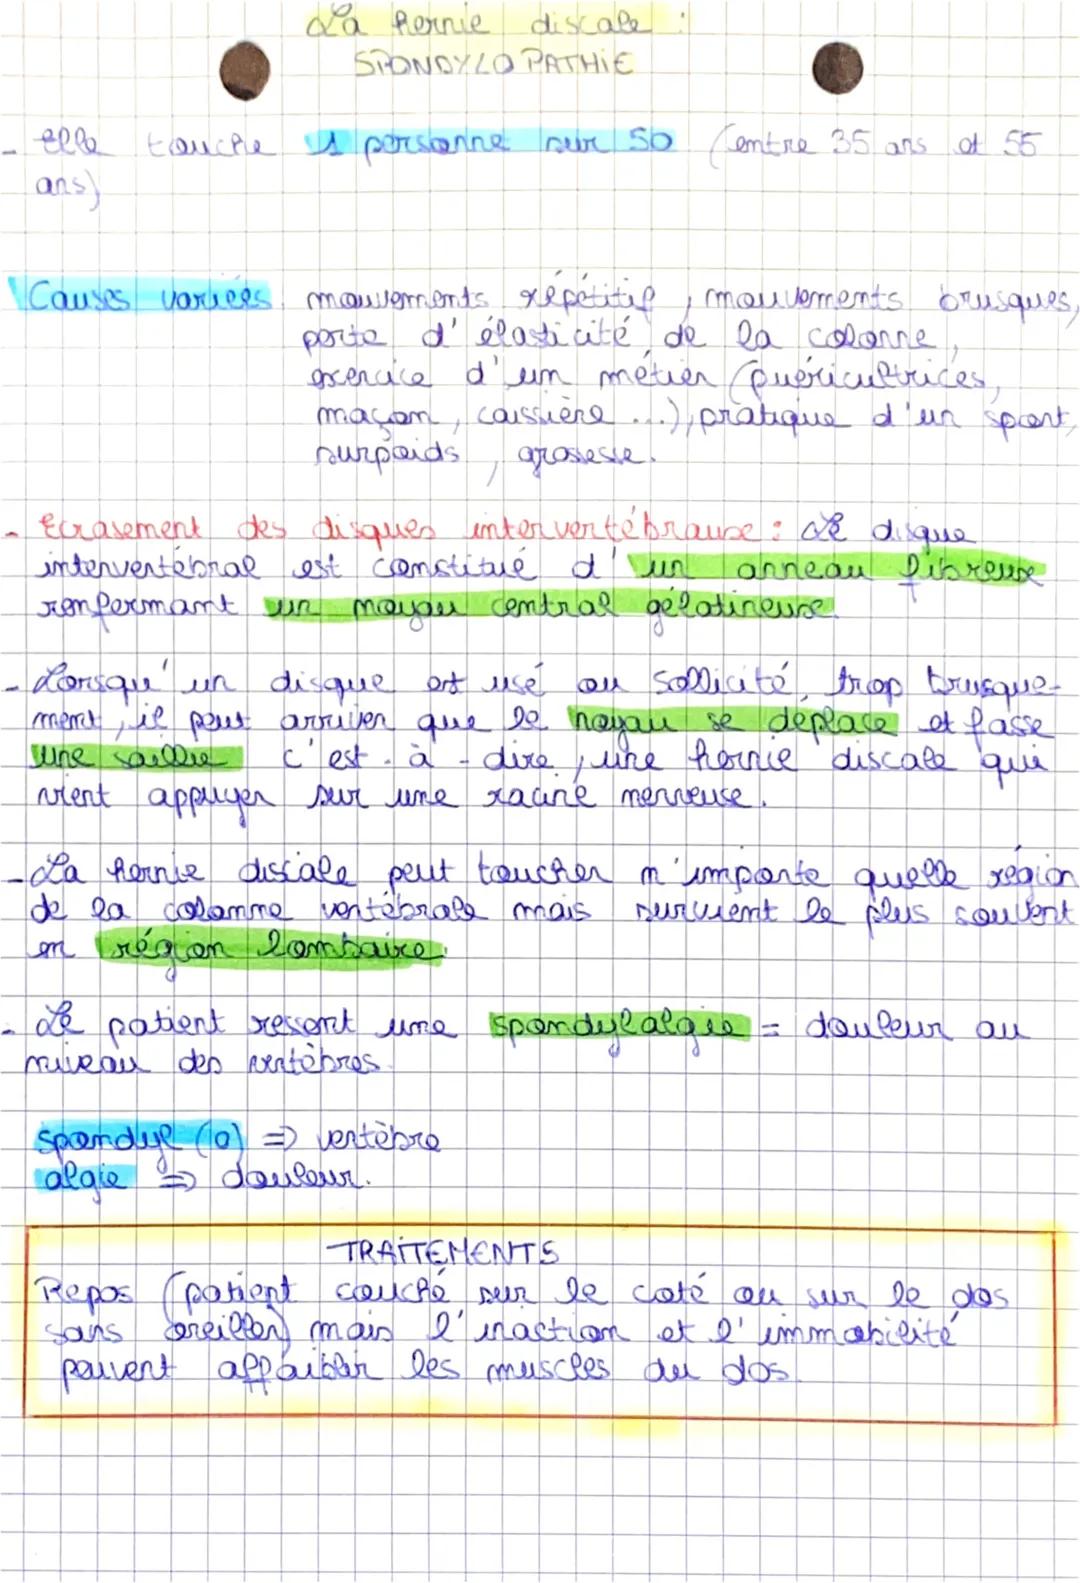 La hernie discale :
SPONDYLOPATHIE
- elle touche 1 personne sur 50 (entre 35 ans et 55
ans)
Causes variées mouvements répétitif, mouvements brusques,
perte d'élasticité de la colonne,
exercice d'un métier (puéricultrices,
maçon, caissière ...), pratique d'un sport,
surpoids, grosesse.
- Ecrasement des disques intervertébraux : Le disque
intervertébral est constitué d'un anneau fibreux
renfermant un noyau central gélatineux.
- Lorsqu'un disque est usé ou sollicité, trop brusque-
ment, il peut arriver que le noyau se déplace et fasse
une saillie c'est-à-dire, une hernie discale qui
vient appuyer sur une racine nerveuse.
- La hernie discale peut toucher n'importe quelle région
de la colonne vertébrale mais survient le plus souvent
en région lombaire.
- Le patient ressent une spondylalgie = douleur au
niveau des vertèbres.
spondyl (o) => vertèbre
algie => douleur.
TRAITEMENTS
Repos (patient couché sur le coté ou sur le dos
sans oreiller) mais l'inaction et l'immobilité
peuvent affaiblir les muscles du dos.